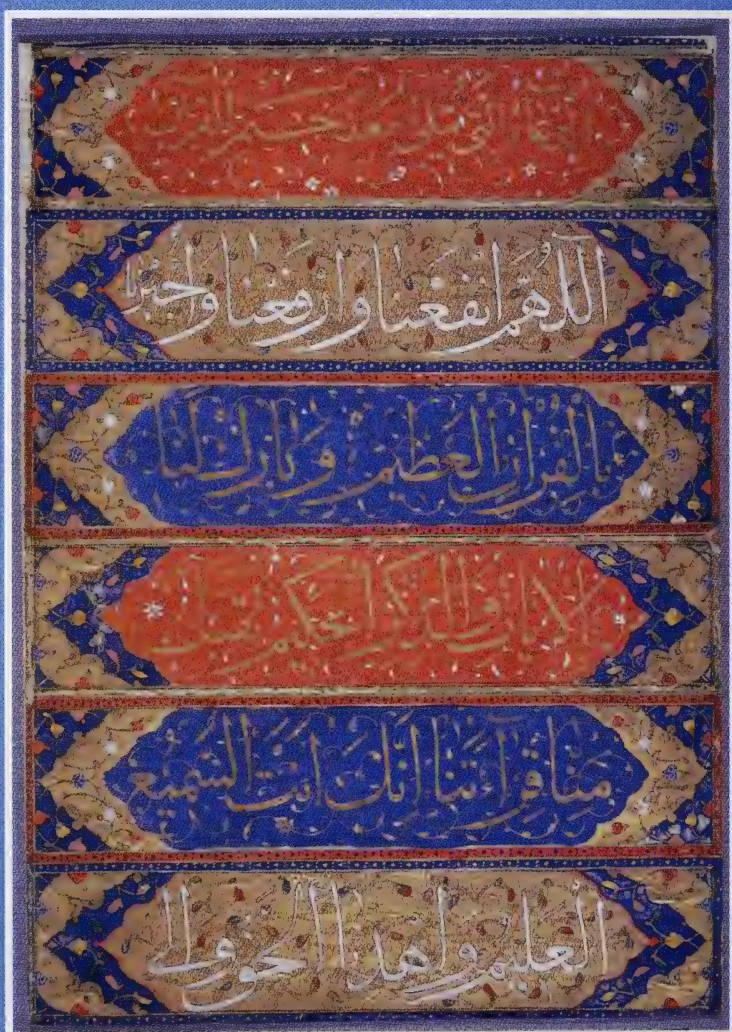 اللهم انفعنا وارفعنا واجبرنا
بالقران العظيم وبارك لنا
الايات والذكر الحكيم تقبل
منا قراءتنا انك انت السميع
العليم واهدنا الحق والى